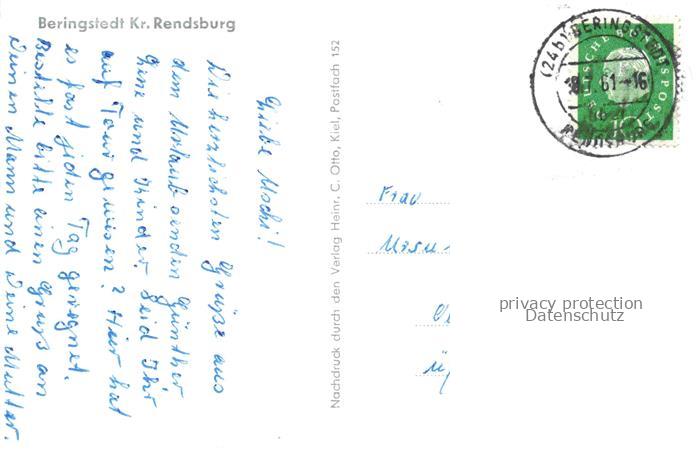 Beringstedt Kr. Rendsburg
Liebe Uschi!
Die herzlichsten Grüße aus
dem Urlaub senden Günther
Gine und Kinder. Seid Ihr
auf Tour gewesen? Hier hat
es fast jeden Tag geregnet.
Bestelle bitte einen Gruß an
Deinen Mann und Deine Mutter.
Nachdruck durch den Verlag Heinr. C. Otto, Kiel, Postfach 152
(24b) BERINGSTEDT
7.61-16
DEUTSCHE BUNDESPOST
Frau
privacy protection
Datenschutz